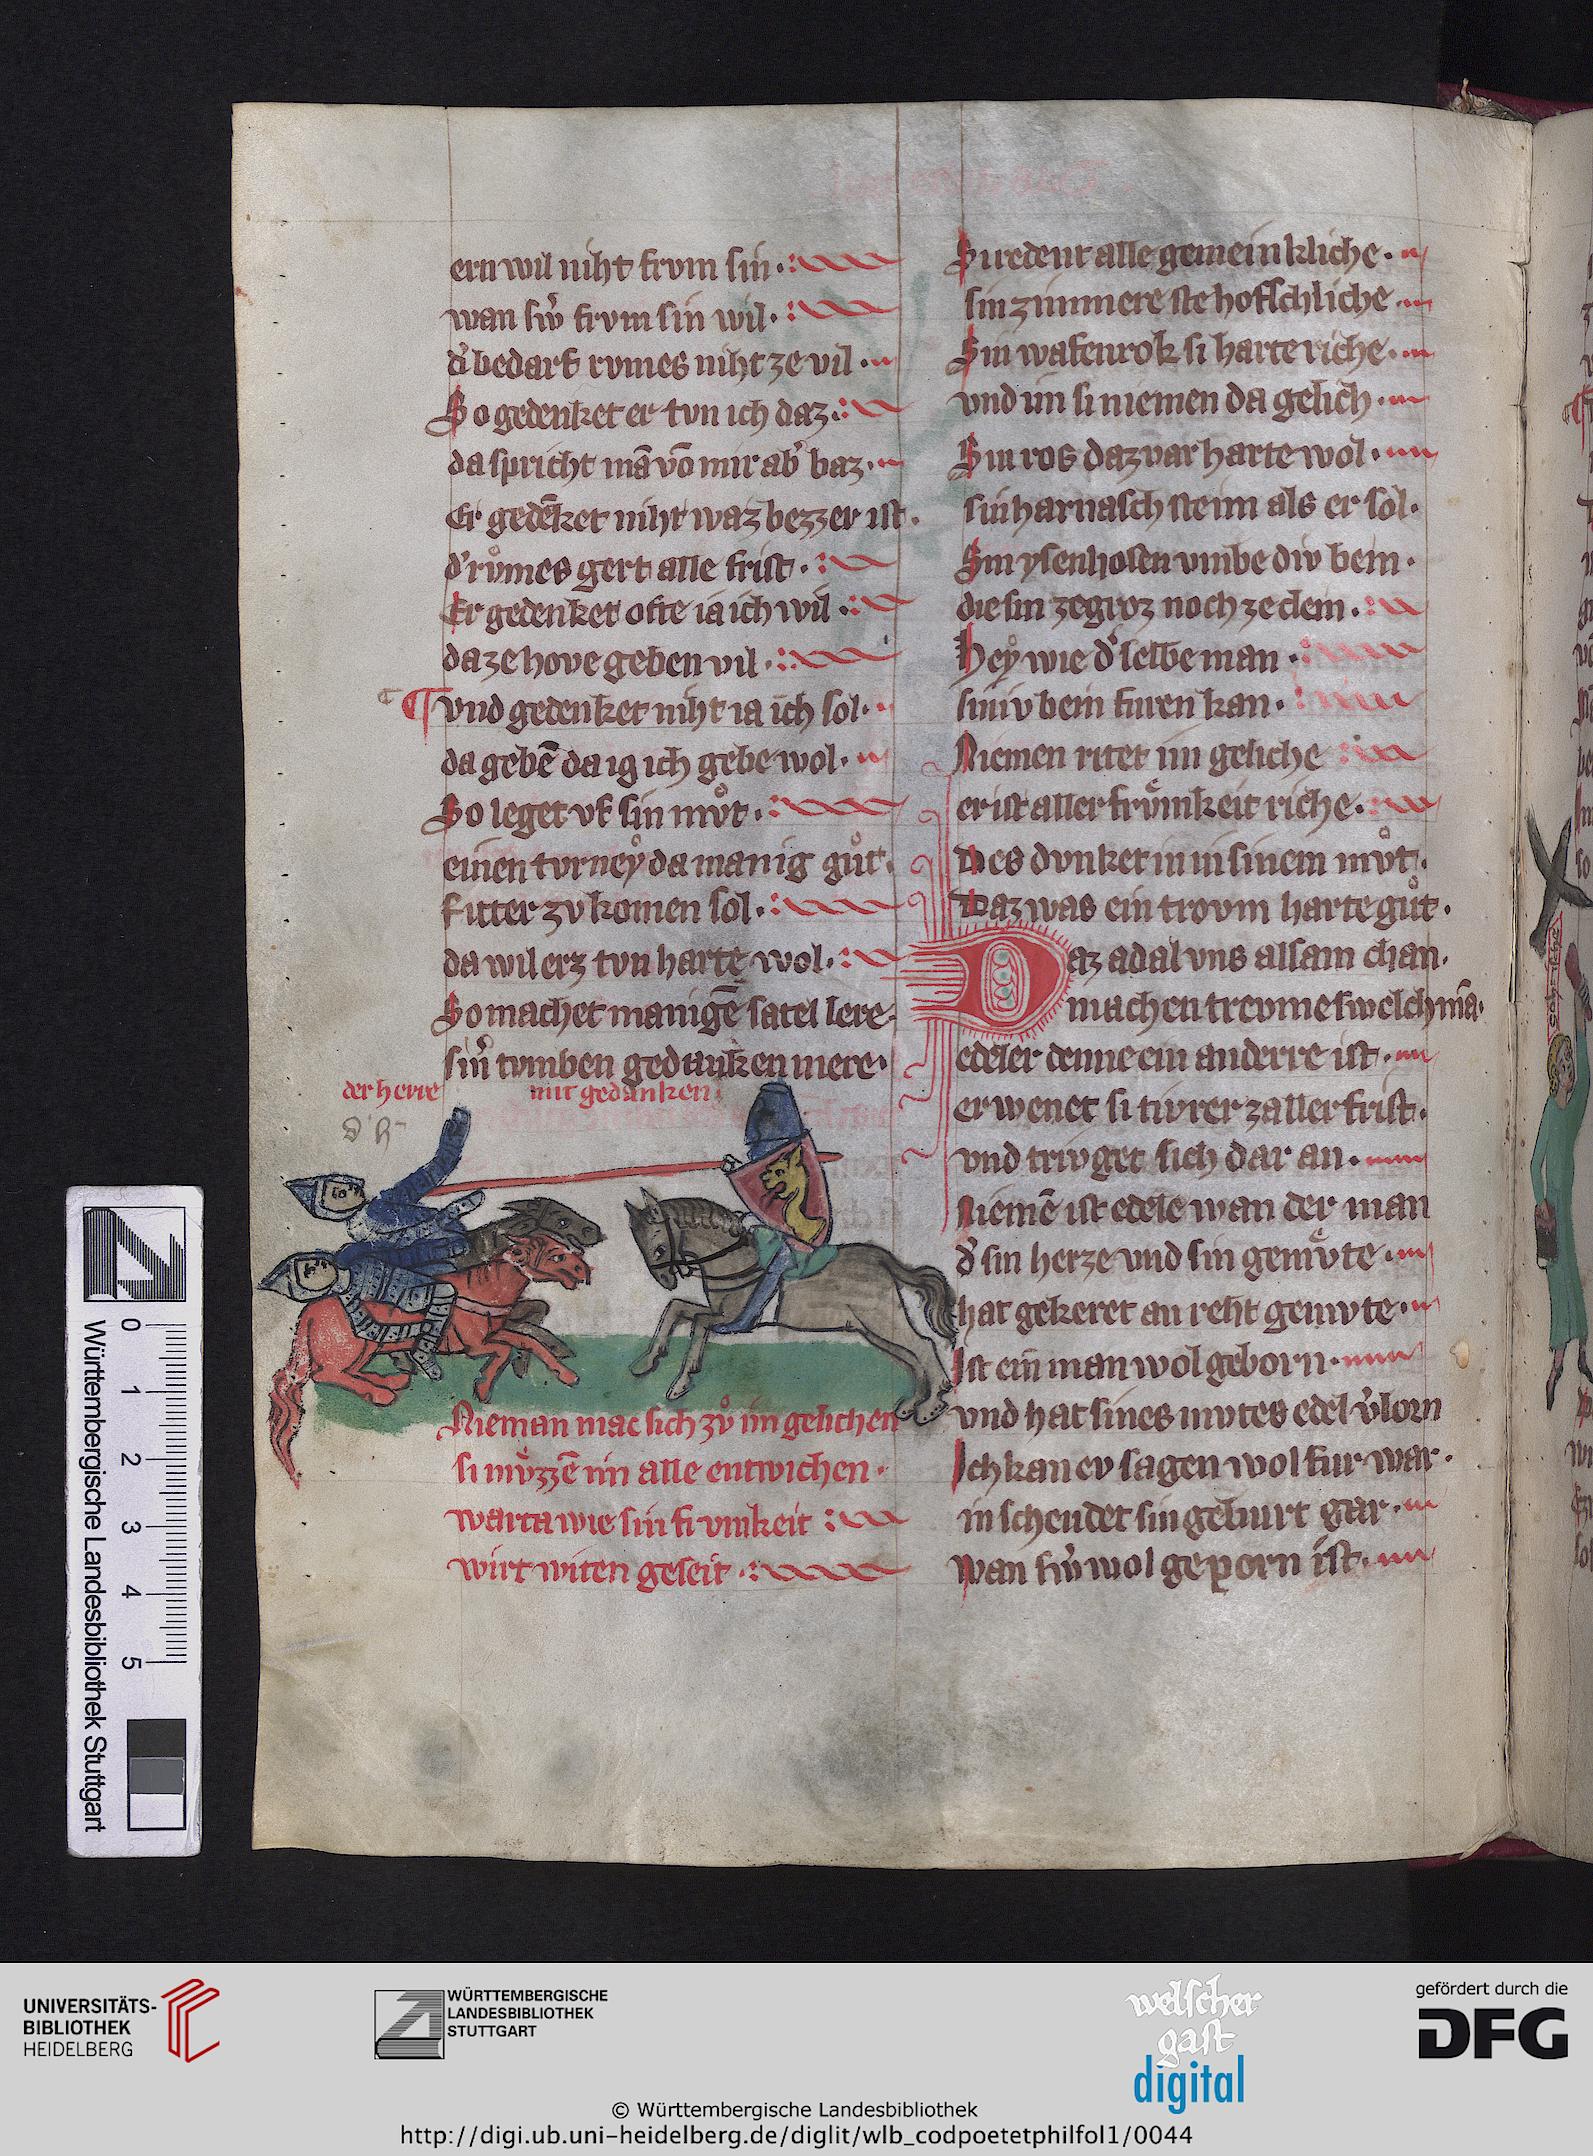 ern wil niht frvm sin
wan sw̓ frvm sin wil
d̓ bedarf rvmes niht ze vil
So gedenket er tvn ich daz
da spricht mā vō mir ab̓ baz
Er gedēket niht waz bezzer ist
d̓ rvͦmes gert alle frist
Er gedenket ofte ia ich wil
da ze hove geben vil
vnd gedenket niht ia ich sol
da gebē da ig ich gebe wol
So leget vf sin mvͦt
einen tvrney da manig gvͦt
Ritter zv komen sol
da wil erz tvn harte wol
So machet manigē satel lere
sin̓ tvmben gedanken mere
der herre
mit gedanken
d̓ h̄
Nieman mac sich zvͦ im gelichen
si mvͤzzē im alle entwichen
warta wie sin frvmkeit
wirt witen geseit
Si redent alle gemeinkliche
sin zimmere ste hofschliche
Sin wafenrok si harte riche
vnd im si niemen da gelich
Sin ros daz var harte wol
sin harnasch ste im als er sol
Sin ysenhosen vmbe div bein
die sin ze groz noch ze clein
Hey wie d̓ selbe man
siniv bein furen kan
Niemen ritet im geliche
er ist aller frvͤmkeit riche
Des dvnket in in sinem mvͦt
Daz was ein trovm harte gvͦt
Daz adal vns allsam chan
machen trevme swelch mā
edeler denne ein anderre ist
er wenet si tivrer zaller frist
vnd trivget sich dar an
Niemē ist edele wan der man
d̓ sin herze vnd sin gemvͤte
hat gekeret an reht gemvte
Ist ein man wol geborn
vnd hat sines mvtes edel v̓lorn
Ich kan ev sagen wol fur war
in schendet sin geburt gar
wan sw̓ wol geporn ist
Württembergische Landesbibliothek Stuttgart
0 1 2 3 4 5
UNIVERSITÄTS-
BIBLIOTHEK
HEIDELBERG
WÜRTTEMBERGISCHE
LANDESBIBLIOTHEK
STUTTGART
welscher
gast
digital
gefördert durch die
DFG
© Württembergische Landesbibliothek
http://digi.ub.uni-heidelberg.de/diglit/wlb_codpoetetphilfol1/0044